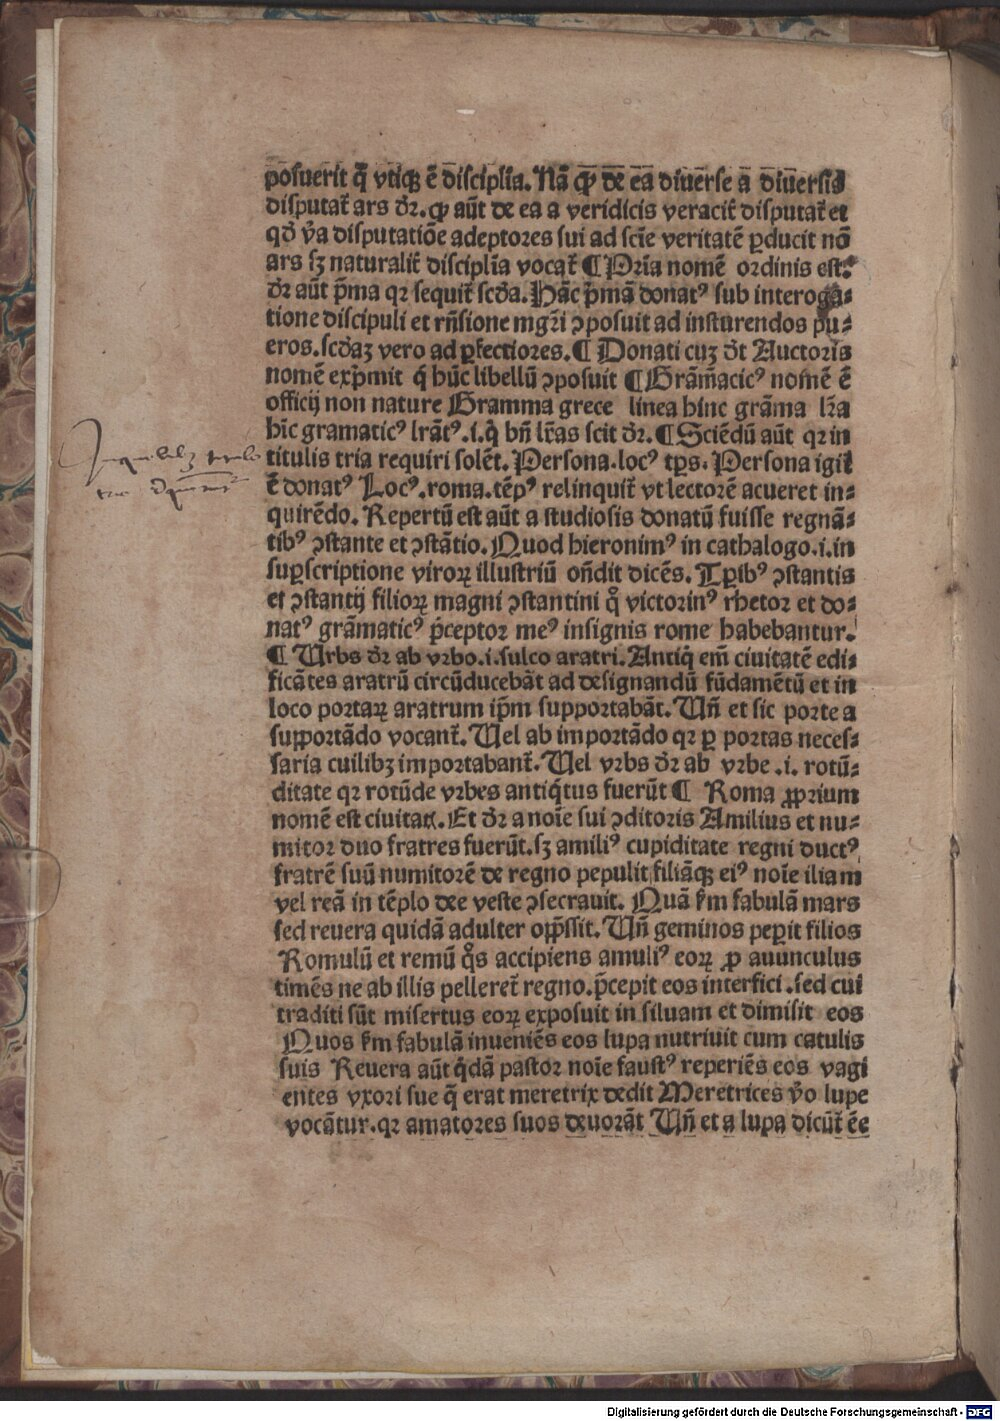 posuerit q̄ vtiqꝫ ē disciplīa. Nā ꝙ de ea diuerse a diuersis
disputat̄ ars dr̄. ꝙ aūt de ea a veridicis veracit̄ disputat̄ et
qď v̓a disputatiōe adeptores sui ad scīe veritatē ꝑducit nō
ars sꝫ naturalit̄ disciplīa vocat̄ ¶ Prīa nomē ordinis est.
dr̄ aūt p̄ma qꝛ sequit̄ scďa. Hāc p̄mā donatꝰ sub interoga⸗
tione discipuli et rn̄sione mgr̄i ꝯposuit ad insturendos pu⸗
eros. scďaꝫ vero ad ꝑfectiores. ¶ Donati cuꝫ dt̄ Auctoris
nomē exp̄mit q̇ hūc libellū ꝯposuit ¶ Grām̄aticꝰ nomē ē
officij non nature Gramma grece linea hinc grāma lr̄a
hīc gramaticꝰ lrāt̄ꝰ .i. q̇ bn̄ lr̄as scit dr̄. ¶ Sciēdū aūt qꝛ in
titulis tria requiri solēt. Persona. locꝰ tp̄s. Persona igit̄
ē donatꝰ Locꝰ. roma. tēpꝰ relinquit̄ vt lectorē acueret in⸗
quirēdo. Repertū est aūt a studiosis donatū fuisse regnā⸗
tibꝰ ꝯstante et ꝯstātio. Quod hieronimꝰ in cathalogo .i. in
suꝑscriptione viroꝝ illustriū on̄dit dicēs. Tꝑibꝰ ꝯstantis
et ꝯstantij filioꝝ magni ꝯstantini qͦ victorinꝰ rhetor et do⸗
natꝰ grāmaticꝰ p̄ceptor meꝰ insignis rome habebantur.
¶ Urbs dr̄ ab vrbo .i. sulco aratri. Antiq̇ em̄ ciuitatē edi⸗
ficātes aratrū circūducebāt ad designandū fūdamētū et in
loco portaꝝ aratrum ip̄m supportabāt. Un̄ et sic porte a
supportādo vocant̄. Uel ab importādo qꝛ ꝑ portas neces⸗
saria cuilibꝫ importabant̄. Uel vrbs dr̄ ab vrbe .i. rotū⸗
ditate qꝛ rotūde vrbes antiq̇tus fuerūt ¶ Roma ꝓprium
nomē est ciuitatꝭ. Et dr̄ a noīe sui ꝯditoris Amilius et nu⸗
mitor duo fratres fuerūt. sꝫ amiliꝰ cupiditate regni ductꝰ
fratrē suū numitorē de regno pepulit filiāqꝫ eiꝰ noīe iliam
vel reā in tēplo dee veste ꝯsecrauit. Quā ẜm fabulā mars
sed reuera quidā adulter opp̄ssit. Un̄ geminos peꝑit filios
Romulū et remū qͦs accipiens amuliꝰ eoꝝ ꝓ auunculus
timēs ne ab illis pelleret̄ regno. p̄cepit eos interfici. sed cui
traditi sūt misertus eoꝝ exposuit in siluam et dimisit eos
Quos ẜm fabulā inueniēs eos lupa nutriuit cum catulis
suis Reuera aūt q̇dā pastor noīe faustꝰ reperiēs eos vagi
entes vxori sue q̄ erat meretrix dedit Meretrices v̓o lupe
vocātur. qꝛ amatores suos deuorāt Un̄ et a lupa dicūt̄ ēe
Digitalisierung gefördert durch die Deutsche Forschungsgemeinschaft - DFG